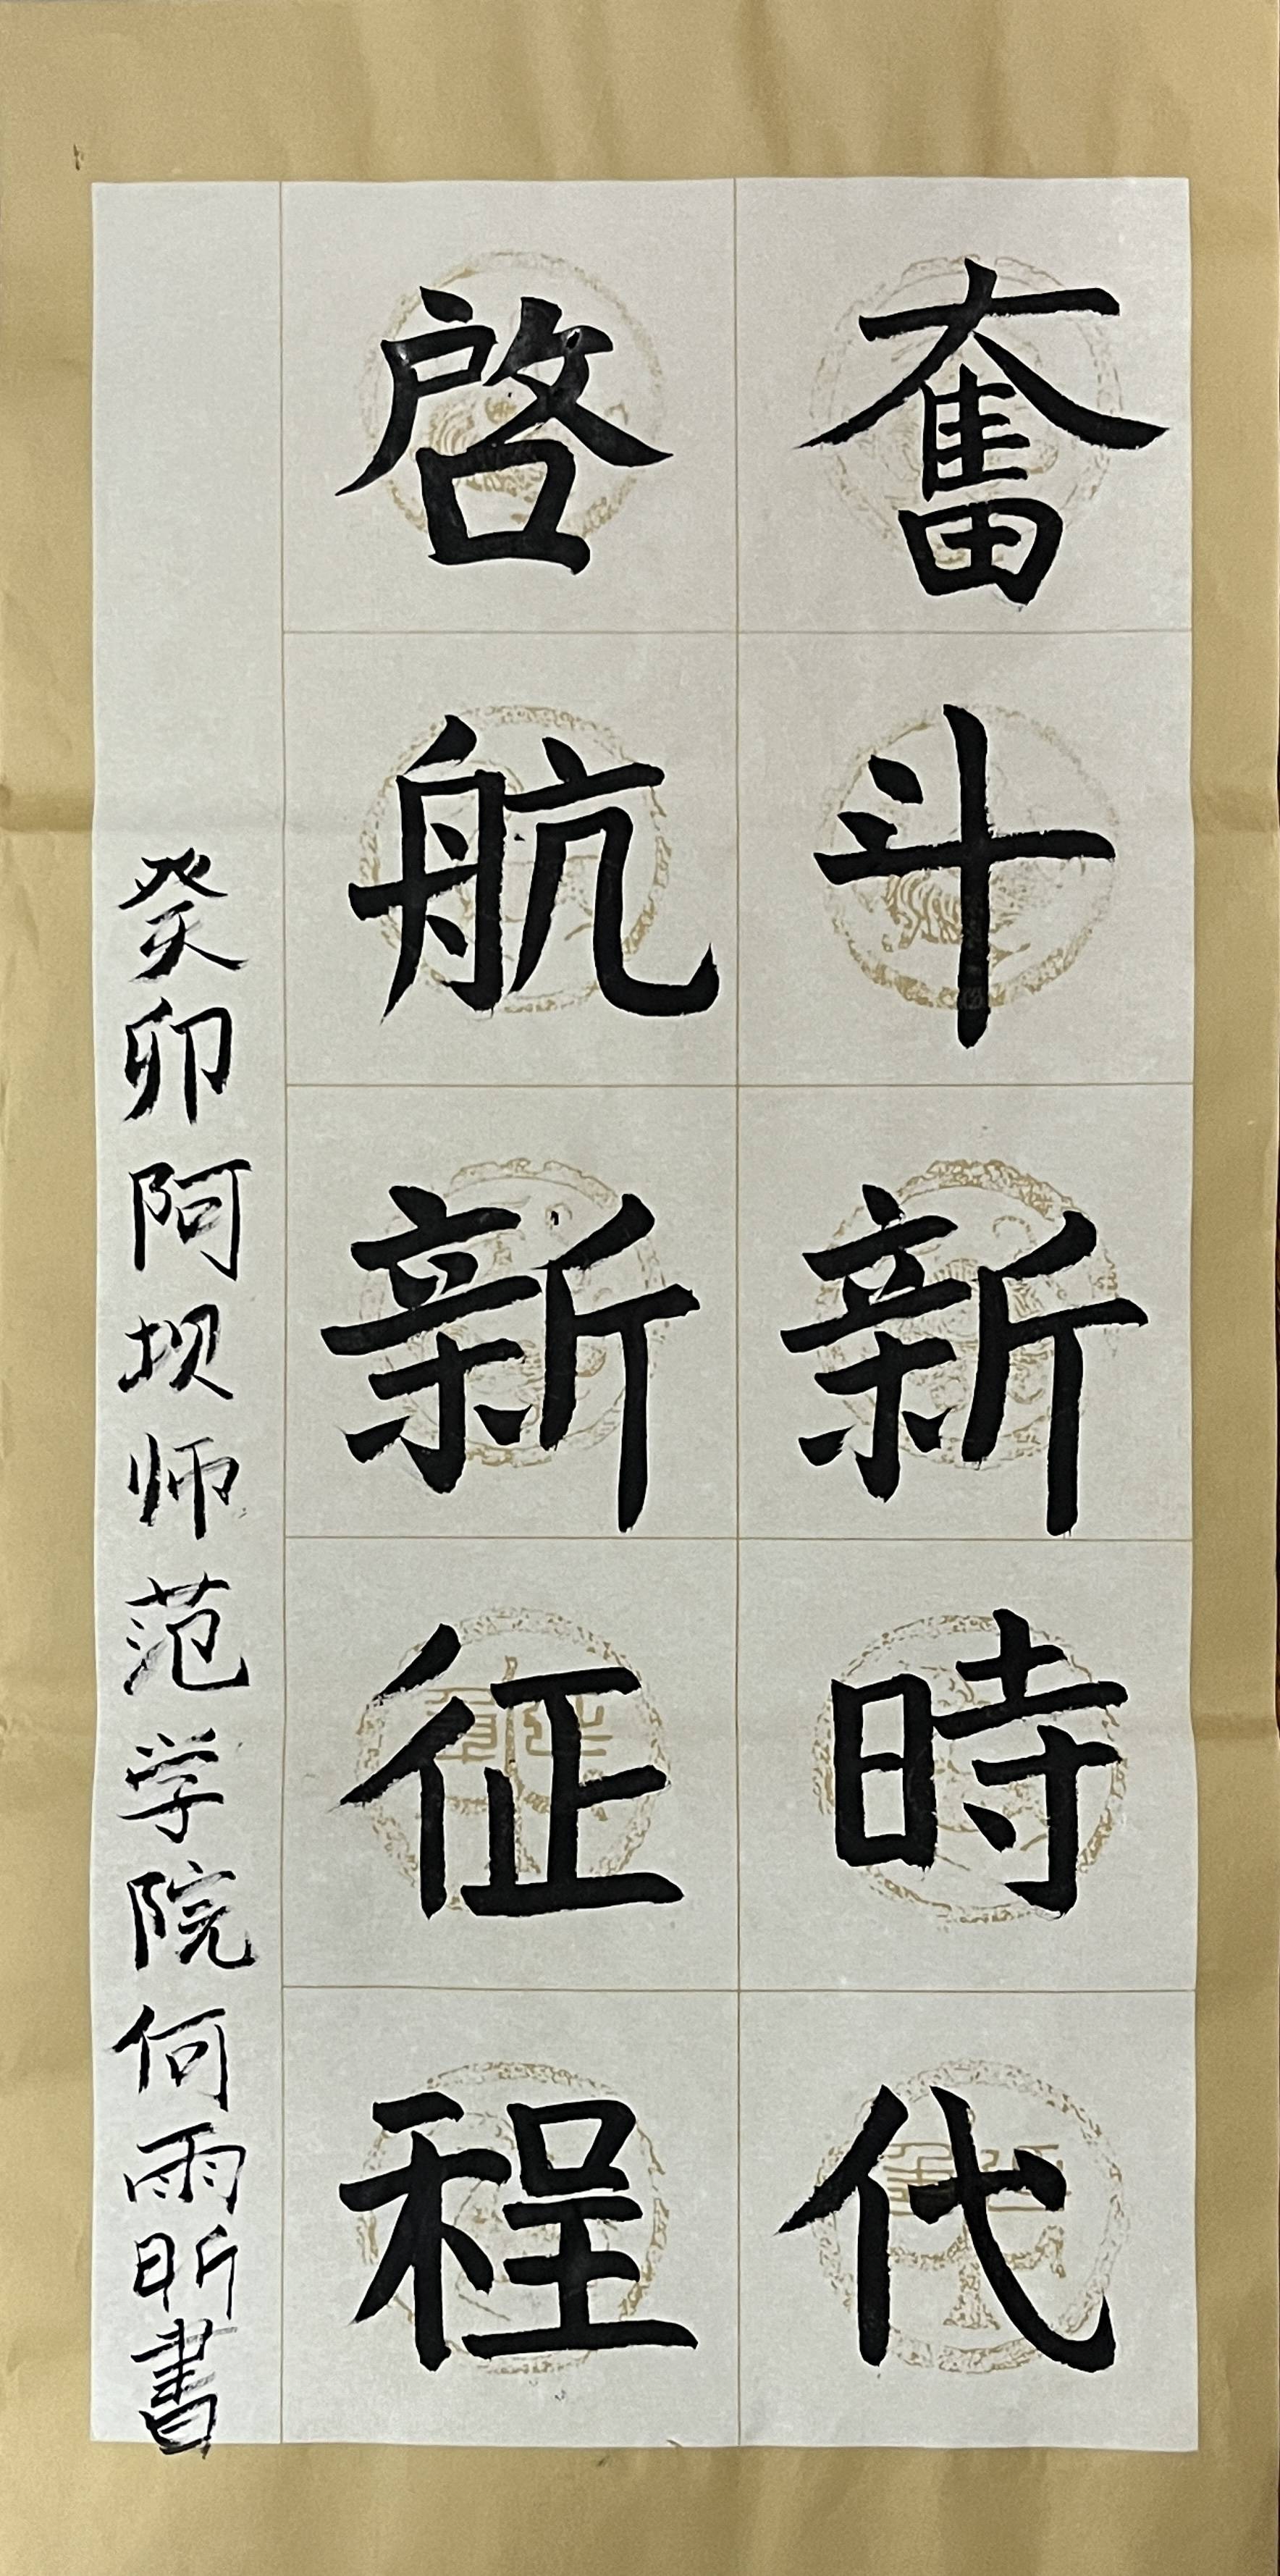 奮斗新時代
啓航新征程
癸卯阿坝师范学院何雨昕書